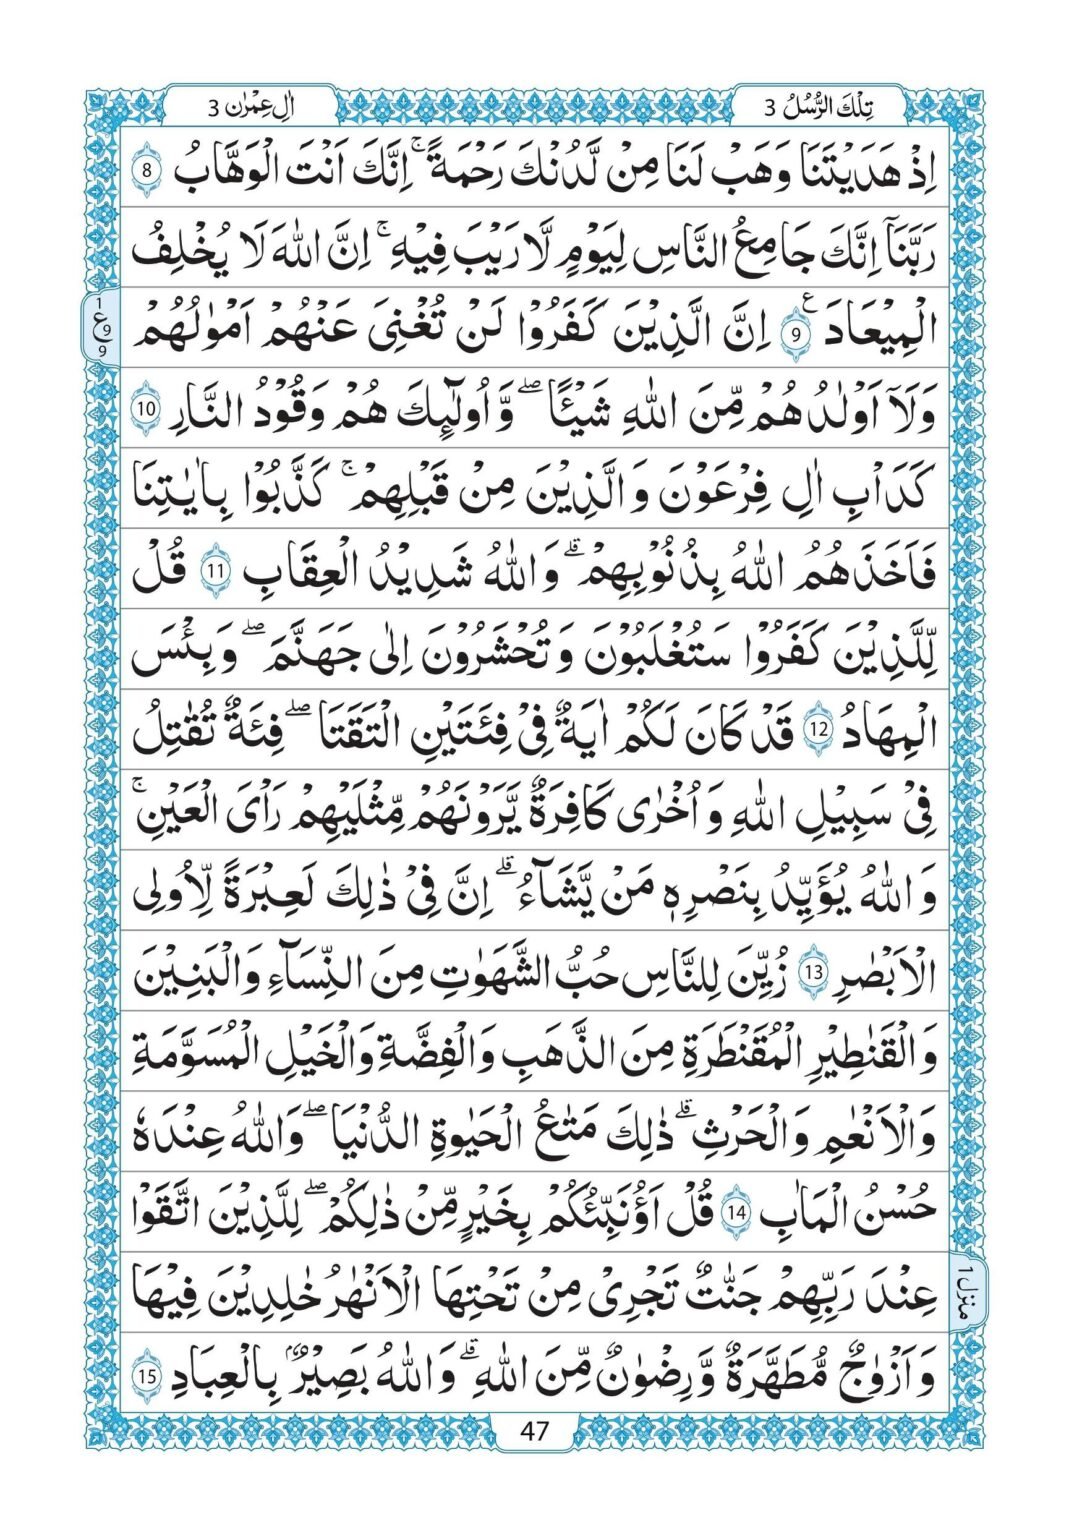 تِلْكَ الرُّسُلُ 3
اٰلِ عِمْرٰن 3
اِذْ هَدَيْتَنَا وَهَبْ لَنَا مِنْ لَّدُنْكَ رَحْمَةً ۚ اِنَّكَ اَنْتَ الْوَهَّابُ 8
رَبَّنَاۤ اِنَّكَ جَامِعُ النَّاسِ لِيَوْمٍ لَّا رَيْبَ فِيْهِ ۚ اِنَّ اللّٰهَ لَا يُخْلِفُ
الْمِيْعَادَ 9 ع اِنَّ الَّذِيْنَ كَفَرُوْا لَنْ تُغْنِىَ عَنْهُمْ اَمْوٰلُهُمْ
1
ع
9
9
وَلَاۤ اَوْلٰدُهُمْ مِّنَ اللّٰهِ شَيْـًٔا ۖ وَّاُولٰٓئِكَ هُمْ وَقُوْدُ النَّارِ 10
كَدَاْبِ اٰلِ فِرْعَوْنَ وَالَّذِيْنَ مِنْ قَبْلِهِمْ ۚ كَذَّبُوْا بِاٰيٰتِنَا
فَاَخَذَهُمُ اللّٰهُ بِذُنُوْبِهِمْ ۗ وَاللّٰهُ شَدِيْدُ الْعِقَابِ 11 قُلْ
لِّلَّذِيْنَ كَفَرُوْا سَتُغْلَبُوْنَ وَتُحْشَرُوْنَ اِلٰى جَهَنَّمَ ۖ وَبِئْسَ
الْمِهَادُ 12 قَدْ كَانَ لَكُمْ اٰيَةٌ فِىْ فِئَتَيْنِ الْتَقَتَا ۖ فِئَةٌ تُقٰتِلُ
فِىْ سَبِيْلِ اللّٰهِ وَاُخْرٰى كَافِرَةٌ يَّرَوْنَهُمْ مِّثْلَيْهِمْ رَاْىَ الْعَيْنِ ۚ
وَاللّٰهُ يُؤَيِّدُ بِنَصْرِهٖ مَنْ يَّشَآءُ ۗ اِنَّ فِىْ ذٰلِكَ لَعِبْرَةً لِّاُولِى
الْاَبْصٰرِ 13 زُيِّنَ لِلنَّاسِ حُبُّ الشَّهَوٰتِ مِنَ النِّسَآءِ وَالْبَنِيْنَ
وَالْقَنٰطِيْرِ الْمُقَنْطَرَةِ مِنَ الذَّهَبِ وَالْفِضَّةِ وَالْخَيْلِ الْمُسَوَّمَةِ
وَالْاَنْعٰمِ وَالْحَرْثِ ۗ ذٰلِكَ مَتٰعُ الْحَيٰوةِ الدُّنْيَا ۖ وَاللّٰهُ عِنْدَهٗ
حُسْنُ الْمَاٰبِ 14 قُلْ اَؤُنَبِّئُكُمْ بِخَيْرٍ مِّنْ ذٰلِكُمْ ۖ لِلَّذِيْنَ اتَّقَوْا
عِنْدَ رَبِّهِمْ جَنّٰتٌ تَجْرِىْ مِنْ تَحْتِهَا الْاَنْهٰرُ خٰلِدِيْنَ فِيْهَا
منزل 1
وَاَزْوٰجٌ مُّطَهَّرَةٌ وَّرِضْوٰنٌ مِّنَ اللّٰهِ ۗ وَاللّٰهُ بَصِيْرٌۢ بِالْعِبَادِ 15
47